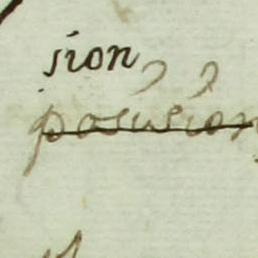 sion
posision